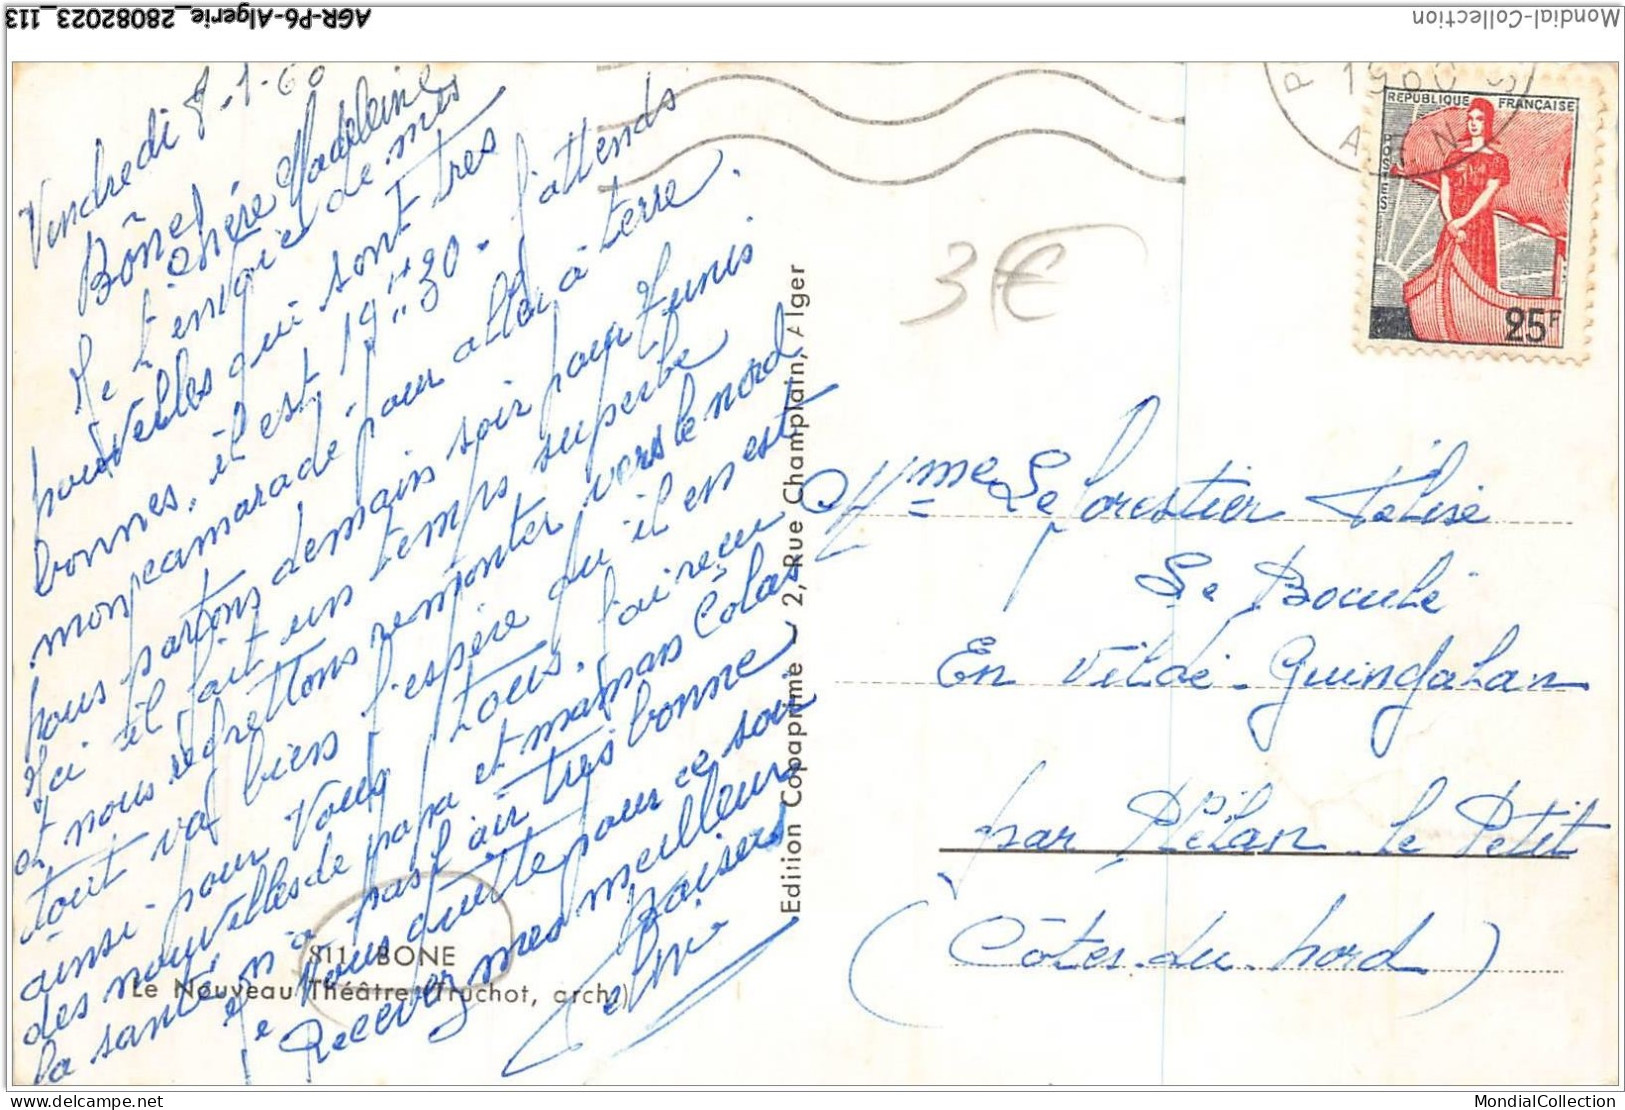 AGR-P6-Algerie_28082023_113
Mondial-Collection
Vendredi 8-1-60
Bône
Chère Madeleine
Je t'envoie de mes
nouvelles qui sont très
bonnes, il est 19 H 30. J'attends
mon camarade pour aller à terre.
nous partons demain soir pour Tunis
Ici il fait un temps superbe
et nous regrettons remonter vers le nord
tout va bien j'espère qu'il en est
ainsi pour vous tous. J'ai reçu
des nouvelles de papa et maman Colas
la santé n'a pas l'air très bonne
Je vous quitte pour ce soir
Recevez mes meilleurs
Baisers
811. BONE
Le Nouveau Théâtre (Truchot, arch.)
Edition Copaprime - 2, Rue Champlain, Alger
3€
1960
REPUBLIQUE FRANÇAISE
POSTES
25F
Mme Leforestier
Le
En Vildé-Guingalan
par Plélan le Petit
(Côtes-du-Nord)
MondialCollection